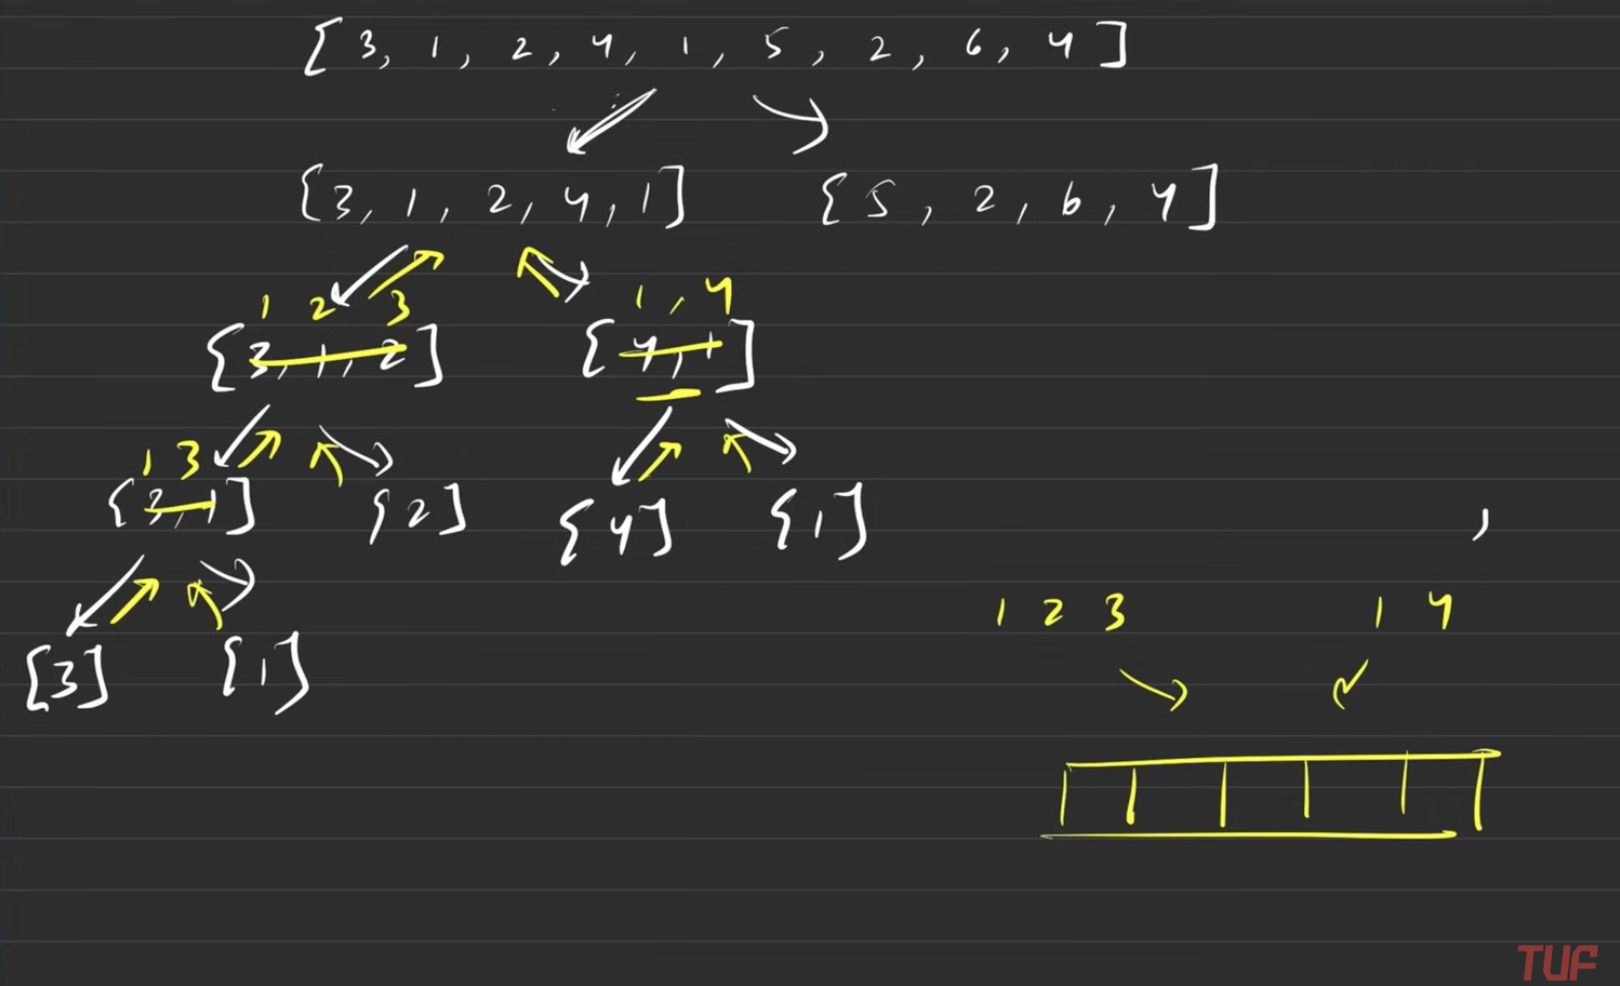 [ 3, 1, 2, 4, 1, 5, 2, 6, 4 ]
[3, 1, 2, 4, 1] [5, 2, 6, 4]
1 2 3 1, 4
[3, 1, 2] [4, 1]
1 3
[3, 1] [2] [4] [1]
,
1 2 3 1 4
[3] [1]
TUF